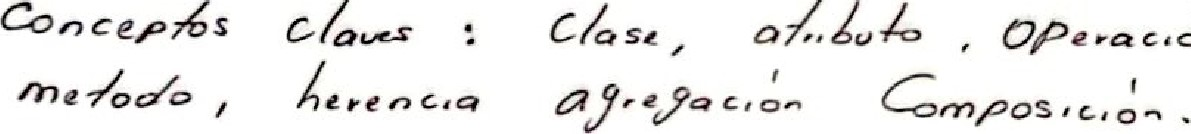 Conceptos claves : Clase, atributo, Operacic
metodo, herencia agregación Composición.